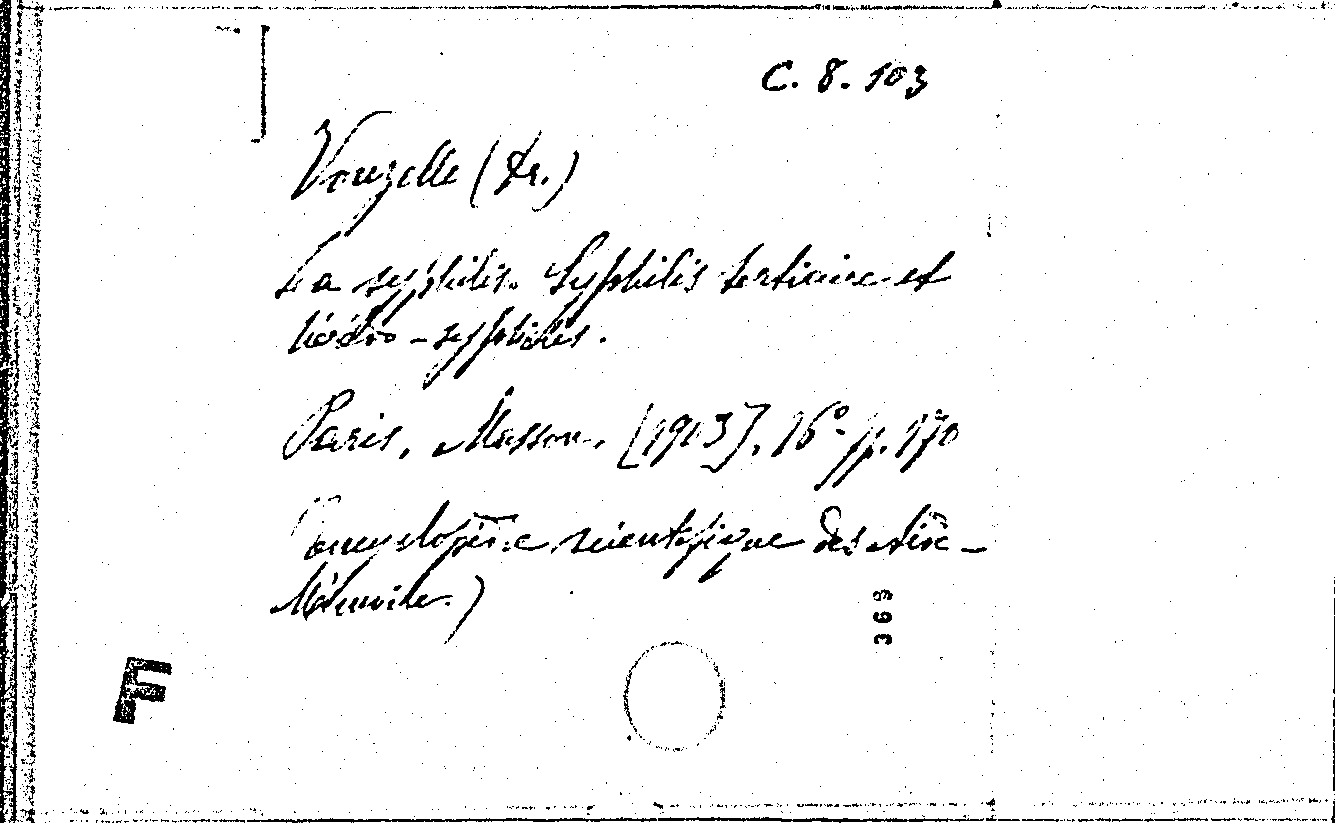 C. 8. 103
Vouzelle (Dr.)
La syphilis. Syphilis tertiaire et
hérédo-syphilis.
Paris, Masson, [1903], 16° pp. 170
(Encyclopédie scientifique des Aide-
Mémoire.)
369
F